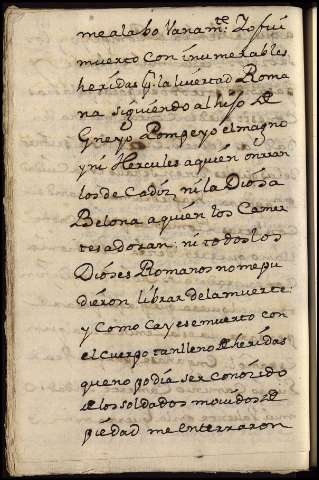 me alabo Vanam.te Yo fui
muerto con inumerables
heridas q. la livertad Roma
na siguiendo al hijo de
Gneyo Pompeyo el magno
y ni Hercules a quien onrran
los de Cadiz, ni la Diosa
Belona a quien los Camer
tes adoran: ni todos los
Dioses Romanos no me pu
dieron librar de la muerte:
y como cayese muerto con
el cuerpo tan lleno de heridas
que no podia ser conozido
de los soldados movidos de
piedad me enterraron